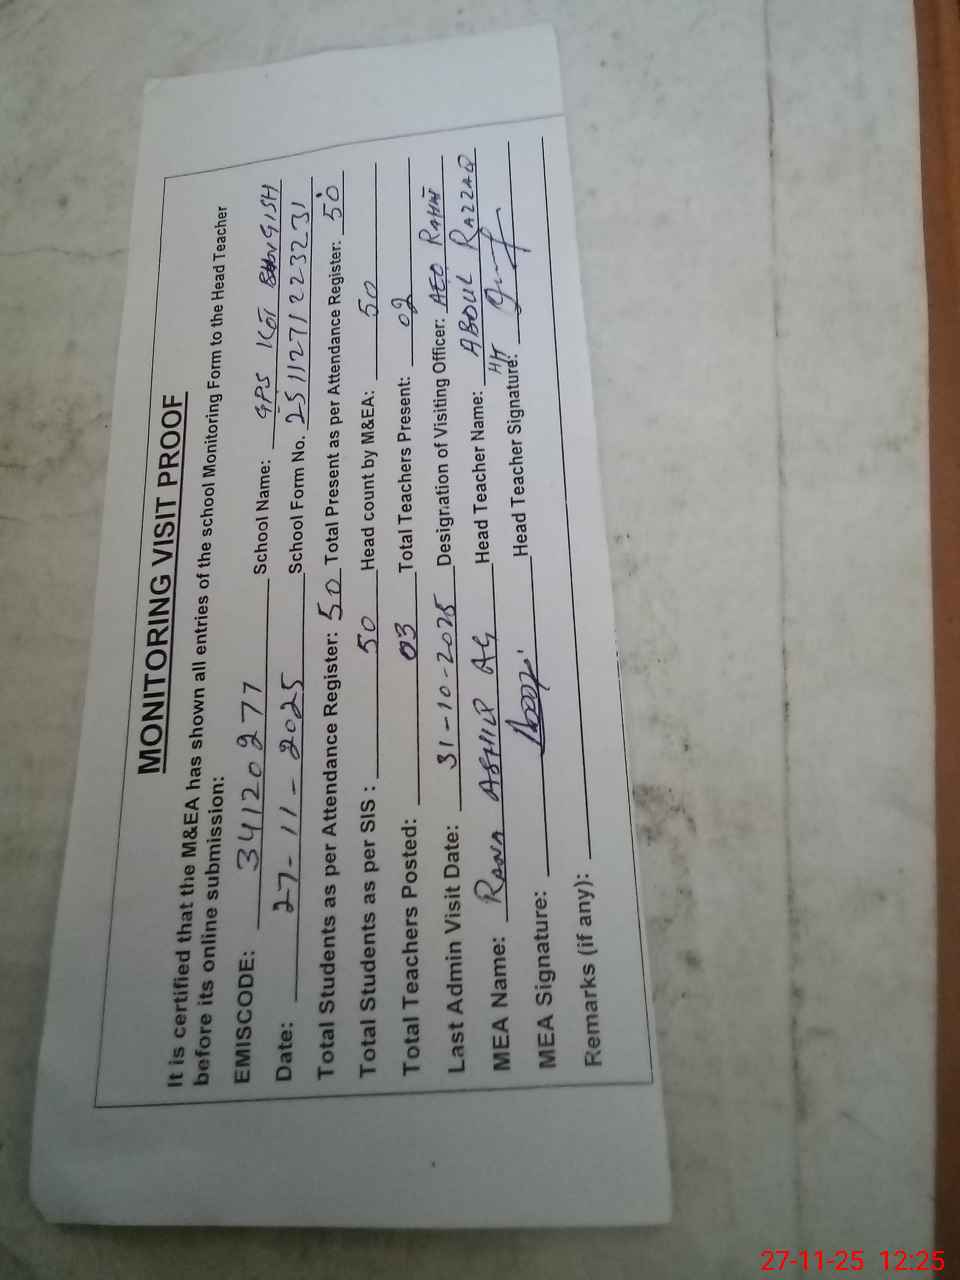 MONITORING VISIT PROOF
It is certified that the M&EA has shown all entries of the school Monitoring Form to the Head Teacher
before its online submission:
EMISCODE: 34120277 School Name: GPS KOT
Date: 27-11-2025 School Form No. 2511271223231
Total Students as per Attendance Register: 50 Total Present as per Attendance Register: 50
Total Students as per SIS : 50 Head count by M&EA: 50
Total Teachers Posted: 03 Total Teachers Present: 02
Last Admin Visit Date: 31-10-2025 Designation of Visiting Officer: AEO
MEA Name: RANA Head Teacher Name: ABDUL RAZZAQ
MEA Signature: Head Teacher Signature:
Remarks (if any):
27-11-25 12:25